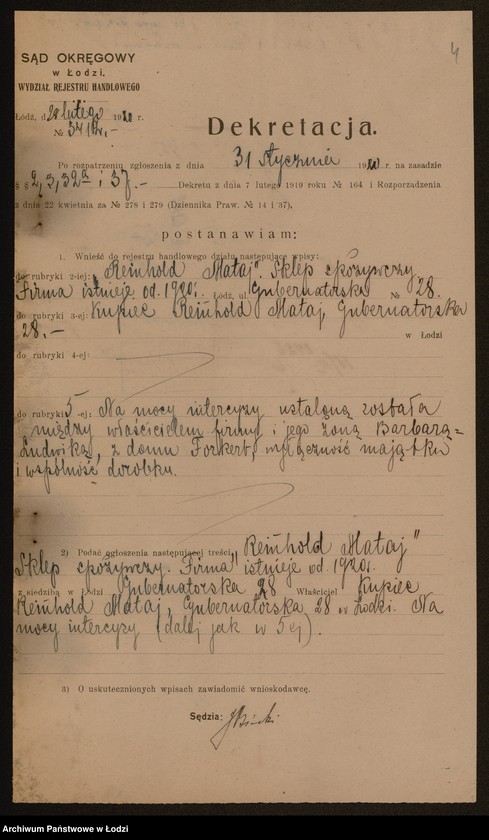 4
SĄD OKRĘGOWY
w Łodzi.
WYDZIAŁ REJESTRU HANDLOWEGO
Łódź, d. 28 lutego 1920 r.
№
Dekretacja.
Po rozpatrzeniu zgłoszenia z dnia 31 stycznia 1920 r. na zasadzie
§ § 2, 3, 32a i 37.— Dekretu z dnia 7 lutego 1919 roku № 164 i Rozporządzenia
z dnia 22 kwietnia za № 278 i 279 (Dziennika Praw. № 14 i 37),
postanawiam:
1. Wnieść do rejestru handlowego działu następujące wpisy:
do rubryki 2-iej: „Reinhold Mataj". Sklep spożywczy.
Firma istnieje od 1920r. Łódź, ul. Gubernatorska № 28.
do rubryki 3-ej: Kupiec Reinhold Mataj, Gubernatorska
28.— w Łodzi
do rubryki 4-ej:
do rubryki 5-ej: Na mocy intercyzy ustaloną została
między właścicielem firmy i jego żoną Barbarą=
Ludwiką, z domu Forkert, wyłączność majątku
i wspólność dorobku.
2) Podać ogłoszenia następującej treści: „Reinhold Mataj"
Sklep spożywczy. Firma istnieje od 1920r.
z siedzibą w Łodzi Gubernatorska 28 Właściciel Kupiec
Reinhold Mataj, Gubernatorska 28 w Łodzi. Na
mocy intercyzy (dalej jak w 5ej).
3) O uskutecznionych wpisach zawiadomić wnioskodawcę.
Sędzia:
Archiwum Państwowe w Łodzi